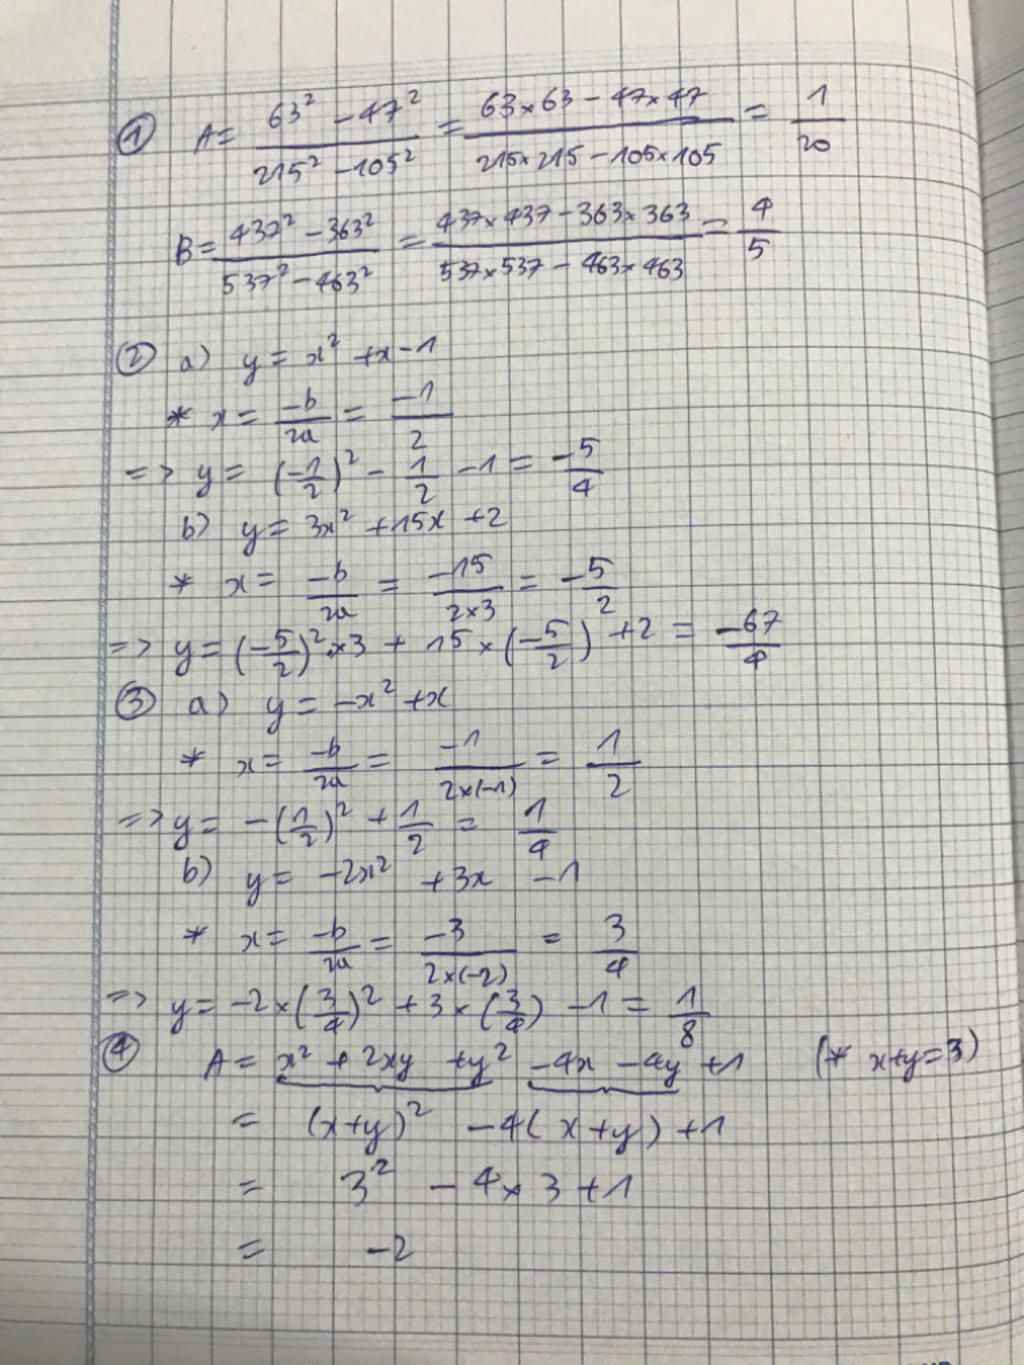 ① A = (63² - 47²)/(215² - 105²) = (63×63 - 47×47)/(215×215 - 105×105) = 1/20
B = (437² - 363²)/(537² - 463²) = (437×437 - 363×363)/(537×537 - 463×463) = 4/5
② a) y = x² + x - 1
* x = -b/2a = -1/2
=> y = (-1/2)² - 1/2 - 1 = -5/4
b) y = 3x² + 15x + 2
* x = -b/2a = -15/(2×3) = -5/2
=> y = (-5/2)² × 3 + 15 × (-5/2) + 2 = -67/4
③ a) y = -x² + x
* x = -b/2a = -1/(2×(-1)) = 1/2
=> y = -(1/2)² + 1/2 = 1/4
b) y = -2x² + 3x - 1
* x = -b/2a = -3/(2×(-2)) = 3/4
=> y = -2×(3/4)² + 3×(3/4) - 1 = 1/8
④ A = x² + 2xy + y² - 4x - 4y + 1 (* x+y=3)
= (x+y)² - 4(x+y) + 1
= 3² - 4×3 + 1
= -2